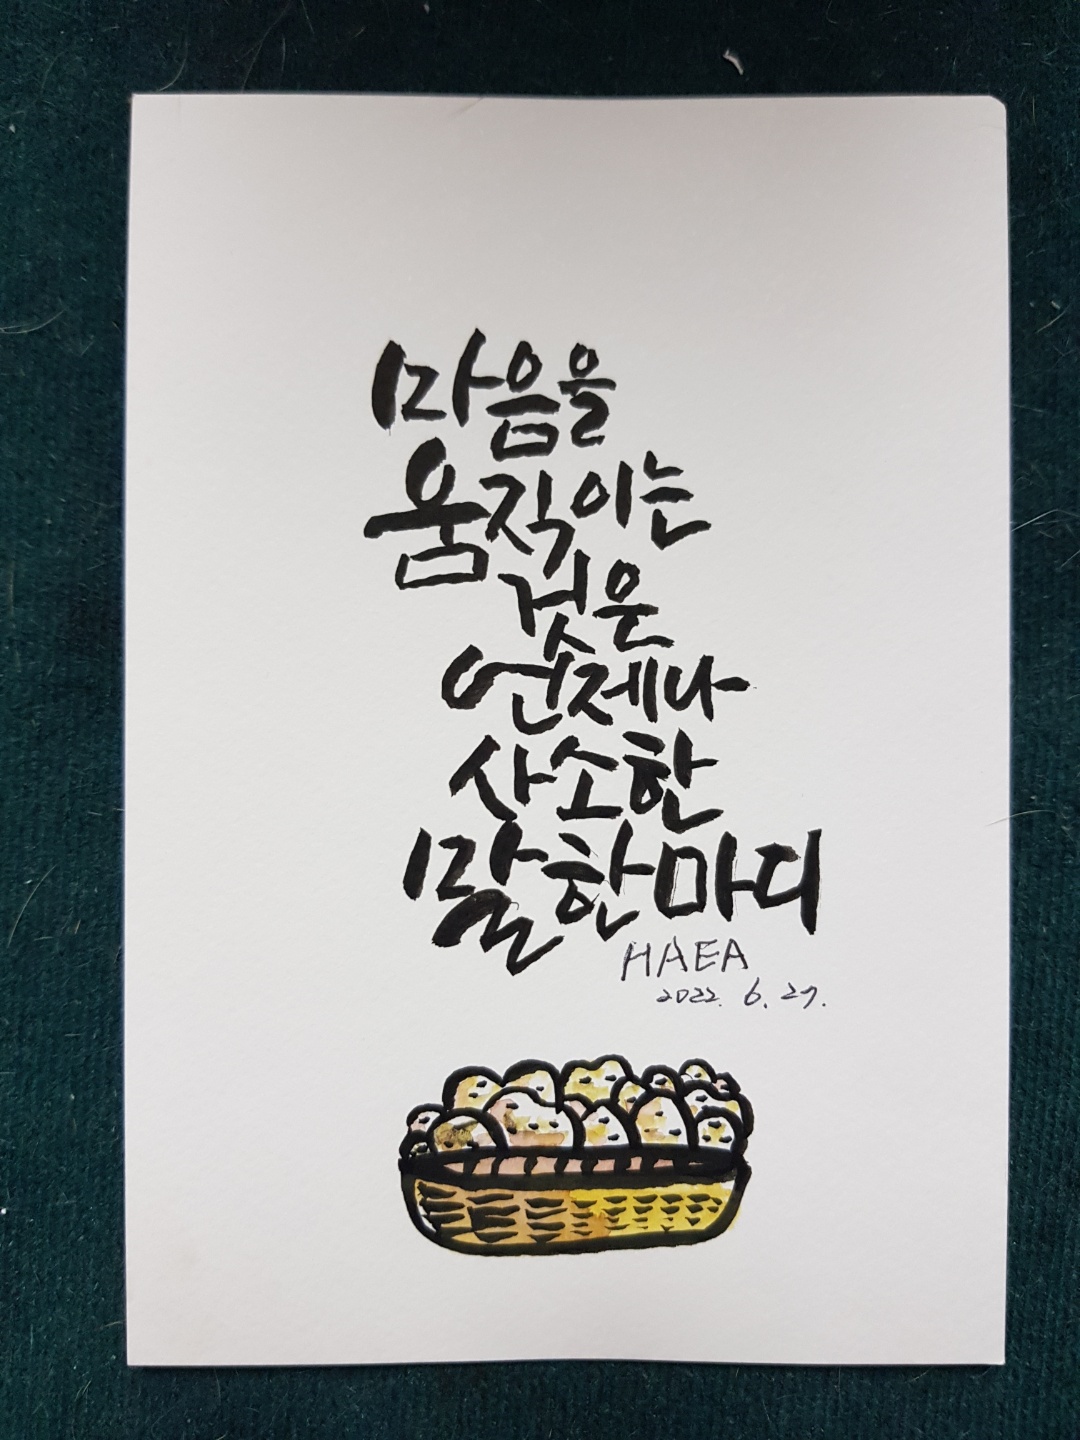 마음을
움직이는
것은
언제나
사소한
말한마디
HAEA
2022. 6. 27.